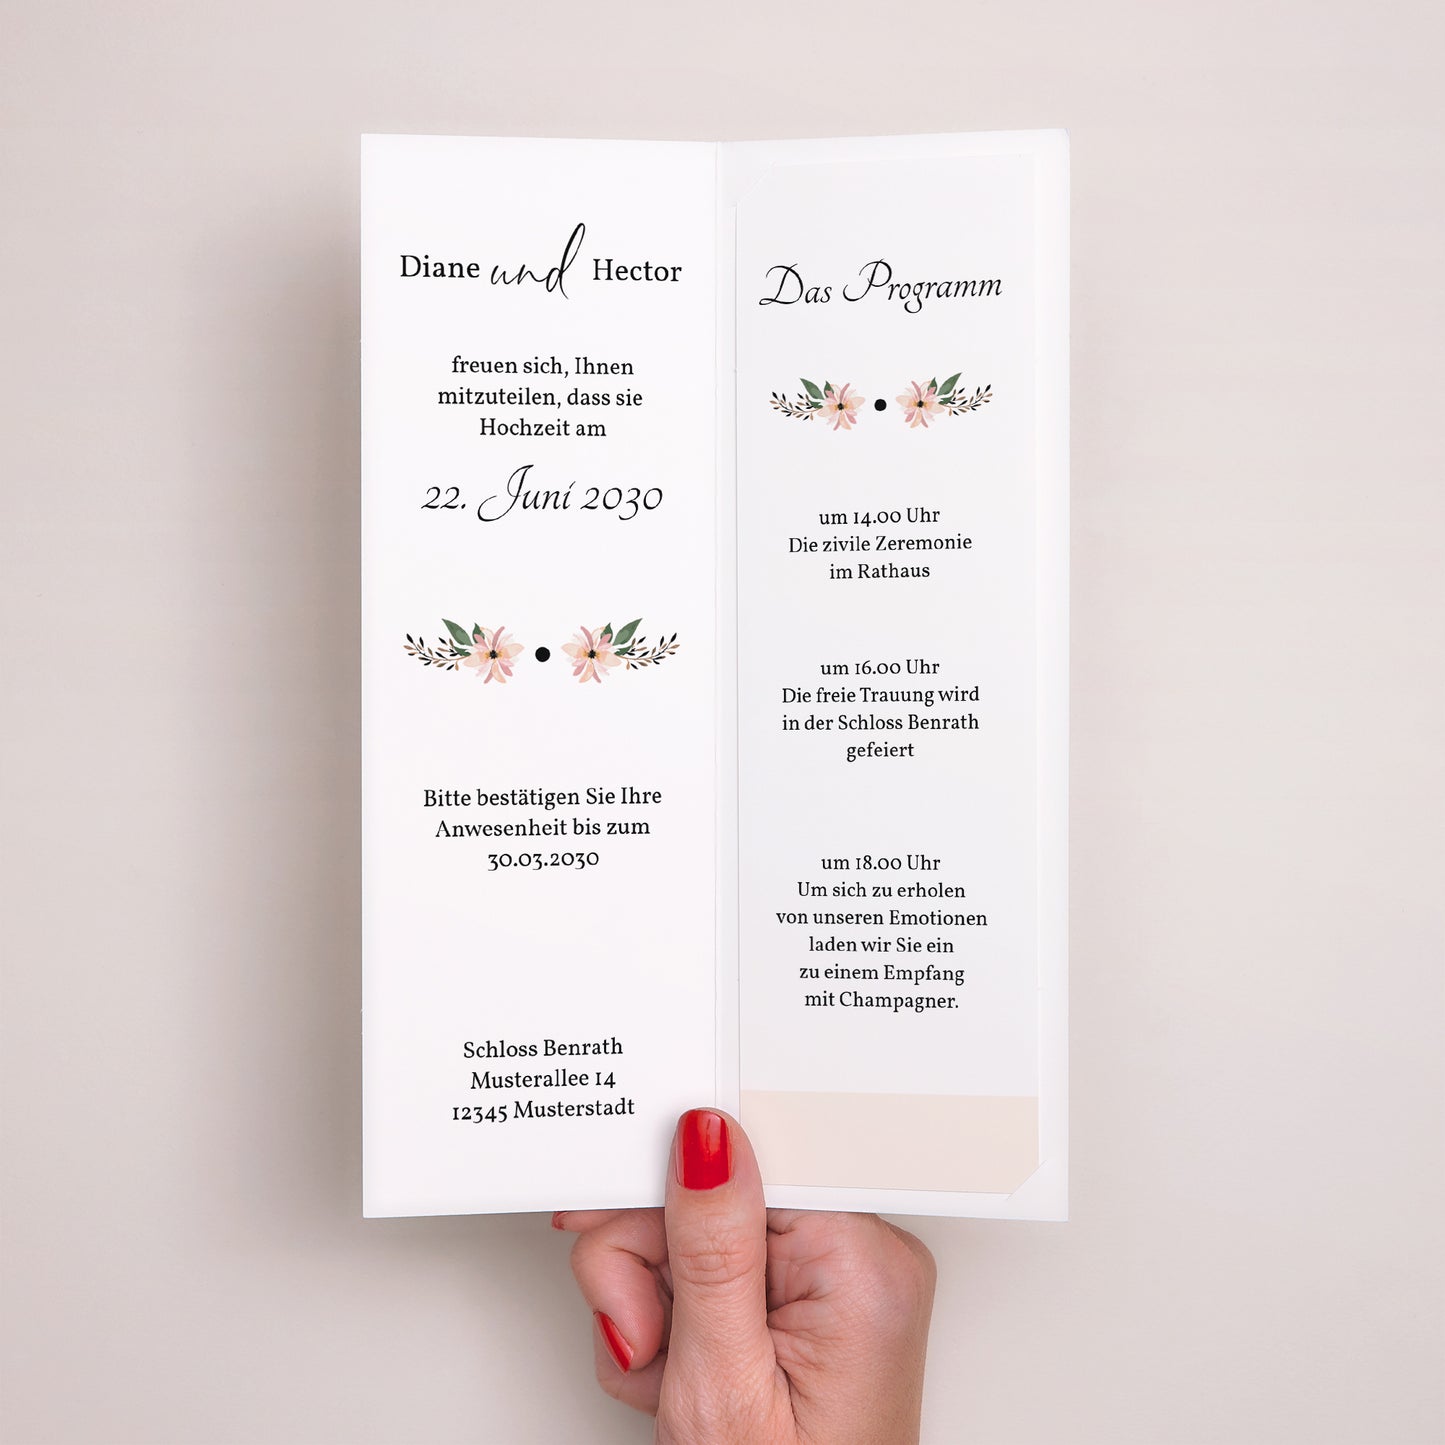 Diane und Hector
freuen sich, Ihnen
mitzuteilen, dass sie
Hochzeit am
22. Juni 2030
Bitte bestätigen Sie Ihre
Anwesenheit bis zum
30.03.2030
Schloss Benrath
Musterallee 14
12345 Musterstadt
Das Programm
um 14.00 Uhr
Die zivile Zeremonie
im Rathaus
um 16.00 Uhr
Die freie Trauung wird
in der Schloss Benrath
gefeiert
um 18.00 Uhr
Um sich zu erholen
von unseren Emotionen
laden wir Sie ein
zu einem Empfang
mit Champagner.